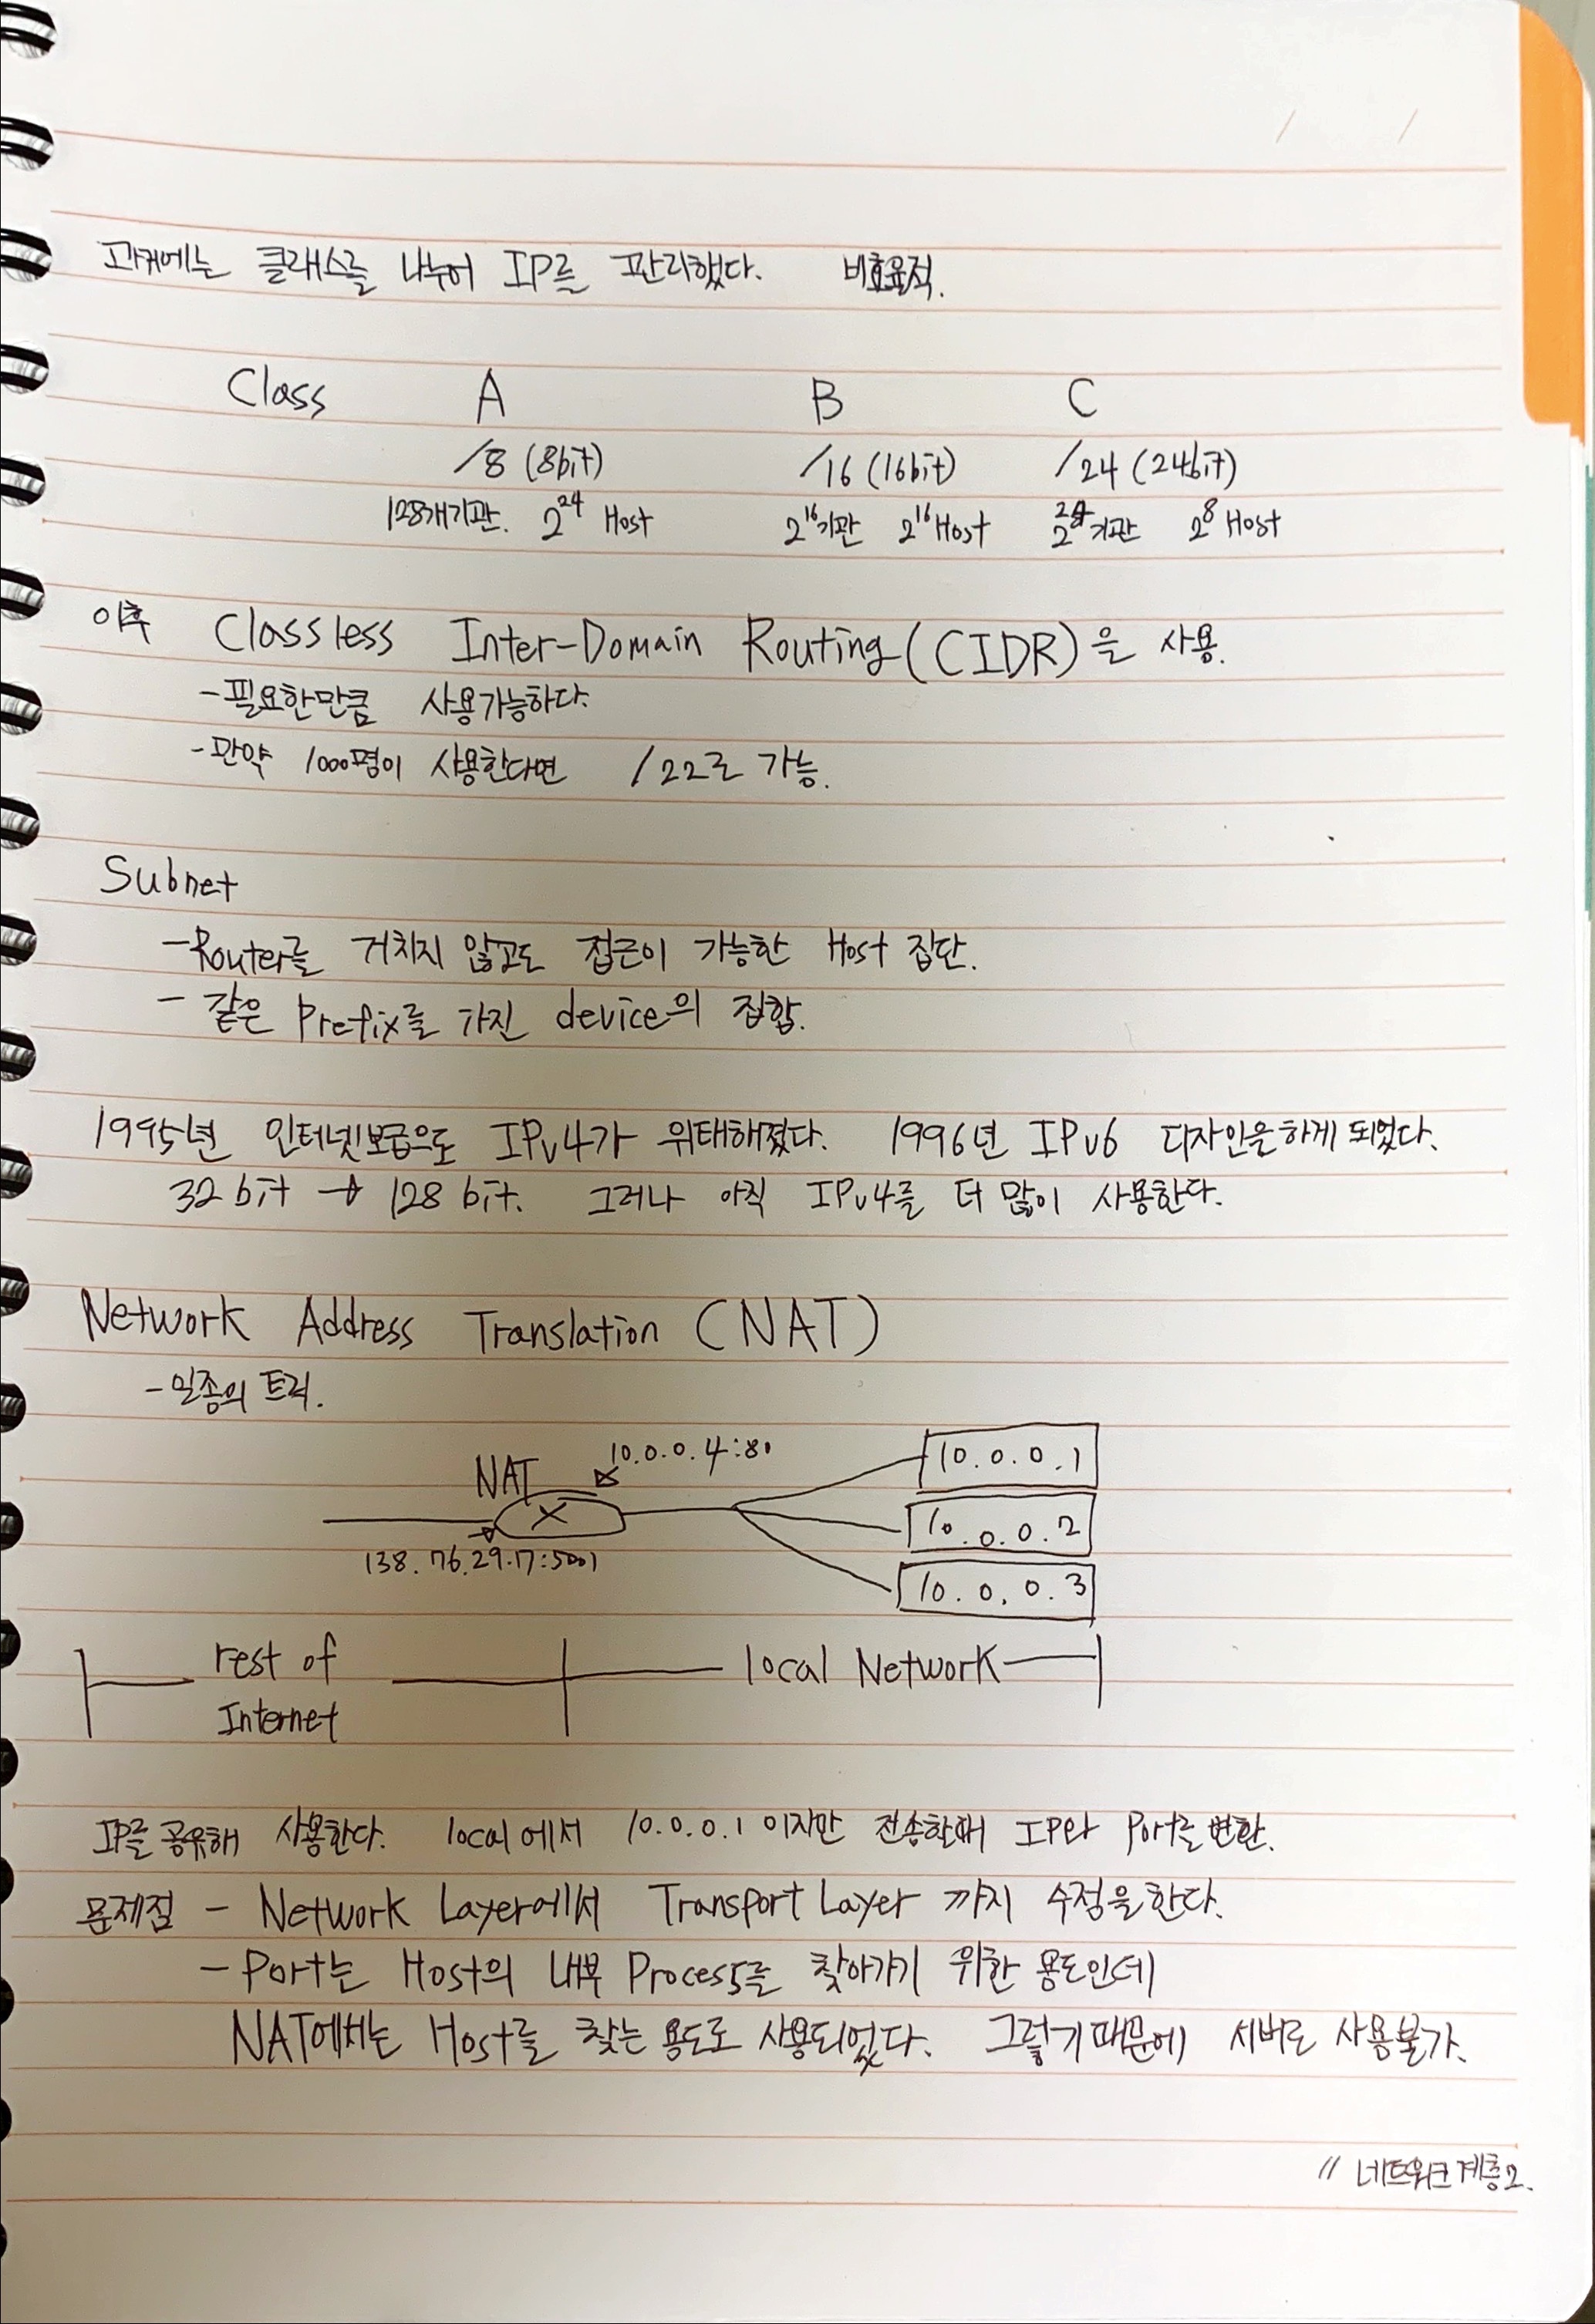 과거에는 클래스를 나누어 IP를 관리했다. 비효율적.
Class A B C
/8 (8bit) /16 (16bit) /24 (24bit)
128개기관. 2^24 Host 2^16기관 2^16Host 2^24기관 2^8 Host
이후 Classless Inter-Domain Routing(CIDR)을 사용.
-필요한만큼 사용가능하다.
-만약 1000명이 사용한다면 /22로 가능.
Subnet
-Router를 거치지 않고도 접근이 가능한 Host 집단.
- 같은 Prefix를 가진 device의 집합.
1995년 인터넷보급으로 IPv4가 위태해졌다. 1996년 IPv6 디자인을하게 되었다.
32 bit → 128 bit. 그러나 아직 IPv4를 더 많이 사용한다.
Network Address Translation (NAT)
-일종의 트릭.
10.0.0.4:80
NAT
10.0.0.1
10.0.0.2
138.76.29.17:5001
10.0.0.3
rest of Internet
local Network
IP를 공유해 사용한다. local에서 10.0.0.1 이지만 전송할때 IP와 Port를 변환.
문제점 - Network Layer에서 Transport Layer 까지 수정을한다.
- Port는 Host의 내부 Process를 찾아가기 위한 용도인데
NAT에서는 Host를 찾는 용도로 사용되었다. 그렇기때문에 서버로 사용불가.
// 네트워크계층2.